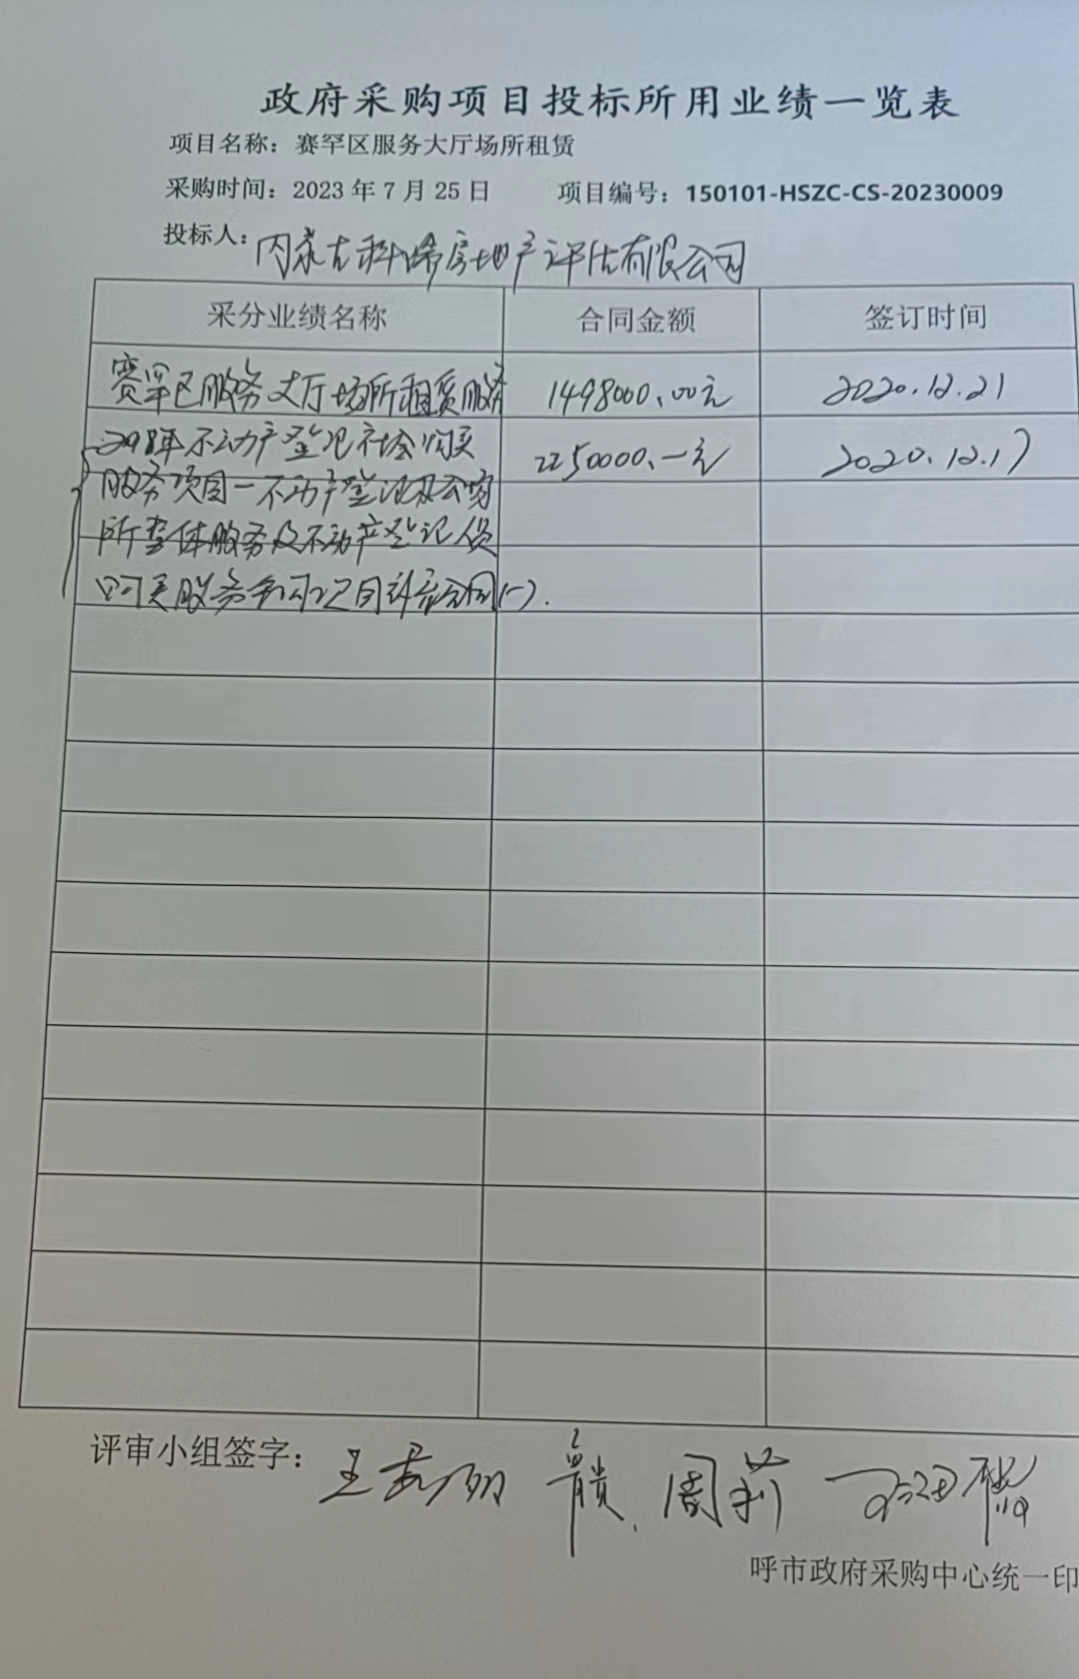 政府采购项目投标所用业绩一览表
项目名称：赛罕区服务大厅场所租赁
采购时间：2023 年 7 月 25 日 项目编号：150101-HSZC-CS-20230009
投标人：内蒙古科瑞房地产评估有限公司
采分业绩名称 合同金额 签订时间
赛罕区服务大厅场所租赁服务 1498000.00元 2020.12.21
2018年不动产登记社会购买 2250000.一元 2020.12.17
服务项目一不动产登记及公
所整体服务及不动产登记
购买服务 合同(一).
评审小组签字： 周莉
呼市政府采购中心统一印